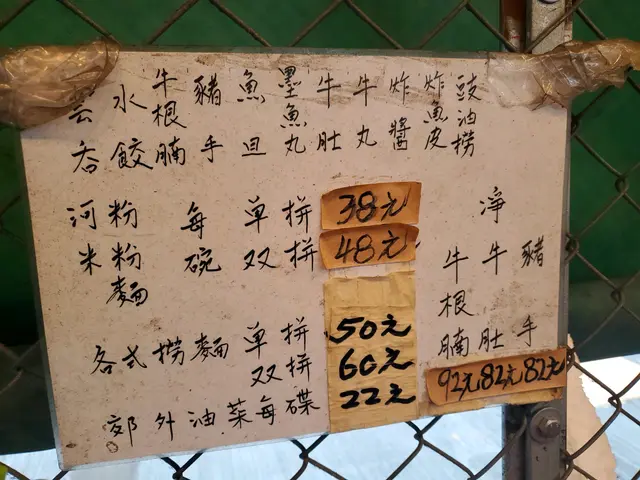 云吞
水餃
牛根腩
豬手
魚旦
墨魚丸
牛肚
牛丸
炸醬
炸魚皮
豉油撈
河粉 每 单拼 38元
米粉 碗 双拼 48元
麵
各式撈麵 单拼 50元
双拼 60元
郊外油菜每碟 22元
淨
牛根腩 92元
牛肚 82元
豬手 82元